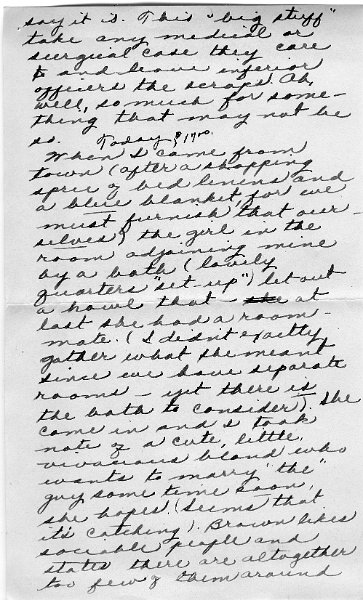 say it is. This "big stuff"
take any medical or
surgical case they care
to and leave inferior
officers the scraps. Ah,
well, so much for some-
thing that may not be
so. Today
When I came from
town (after a shopping
spree of bed linens and
a blue blanket, for we
must furnish that our-
selves) the girl in the
room adjoining mine
by a bath (lovely
quarters "set-up") let out
a howl that – she at
last she had a room-
mate. (I didn't exactly
gather what she meant
since we have separate
rooms – yet there is
the bath to consider). She
came in and I took
note of a cute, little,
vivacious blond who
wants to marry "the"
guy some time soon,
she hopes. (Seems that
it's catching). Brown likes
sociable people and
states there are altogether
too few of them around